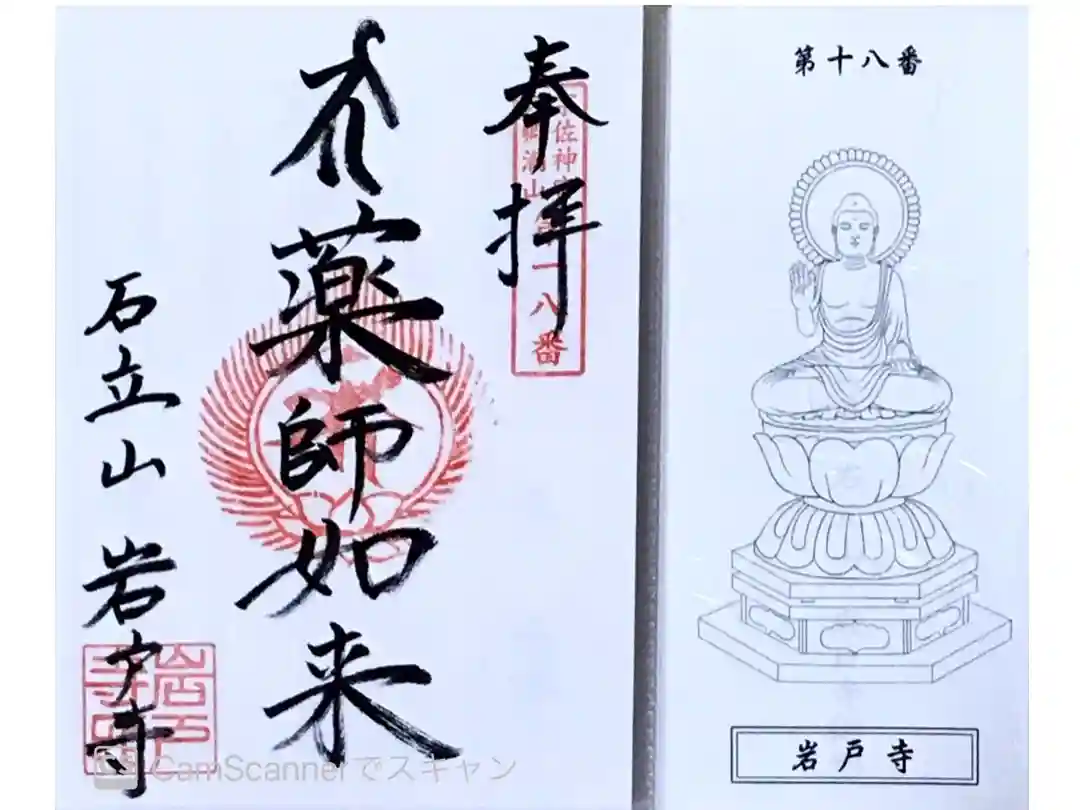 奉拝
薬師如来
石立山 岩戸寺
八番
岩戸寺
第十八番
岩戸寺
CamScannerでスキャン